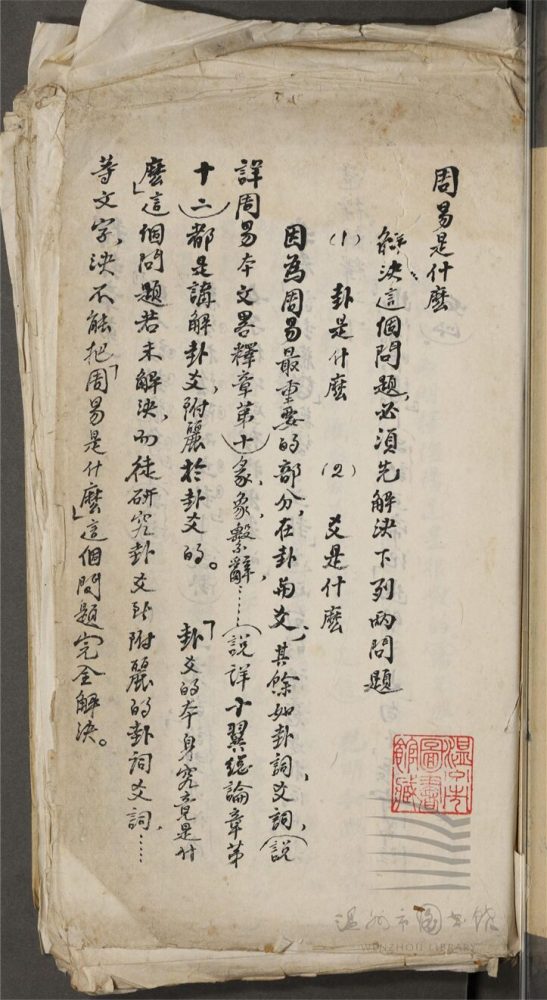 周易是什麼
解決這個問題，必須先解決下列兩問題
(1) 卦是什麼 (2) 爻是什麼
因為周易最重要的部分，在卦與爻，其餘如卦詞，爻詞，(說
詳周易本文畧釋章第十)彖，象，繫辭，……(說詳十翼總論章第
十二)都是講解卦爻，附麗於卦爻的。「卦爻的本身究竟是什
麼」這個問題若未解決，而徒研究卦爻所附麗的卦詞爻詞，……
等文字，決不能把「周易是什麼」這個問題完全解決。
溫州市圖書館藏
温州市图书馆
WENZHOU LIBRARY